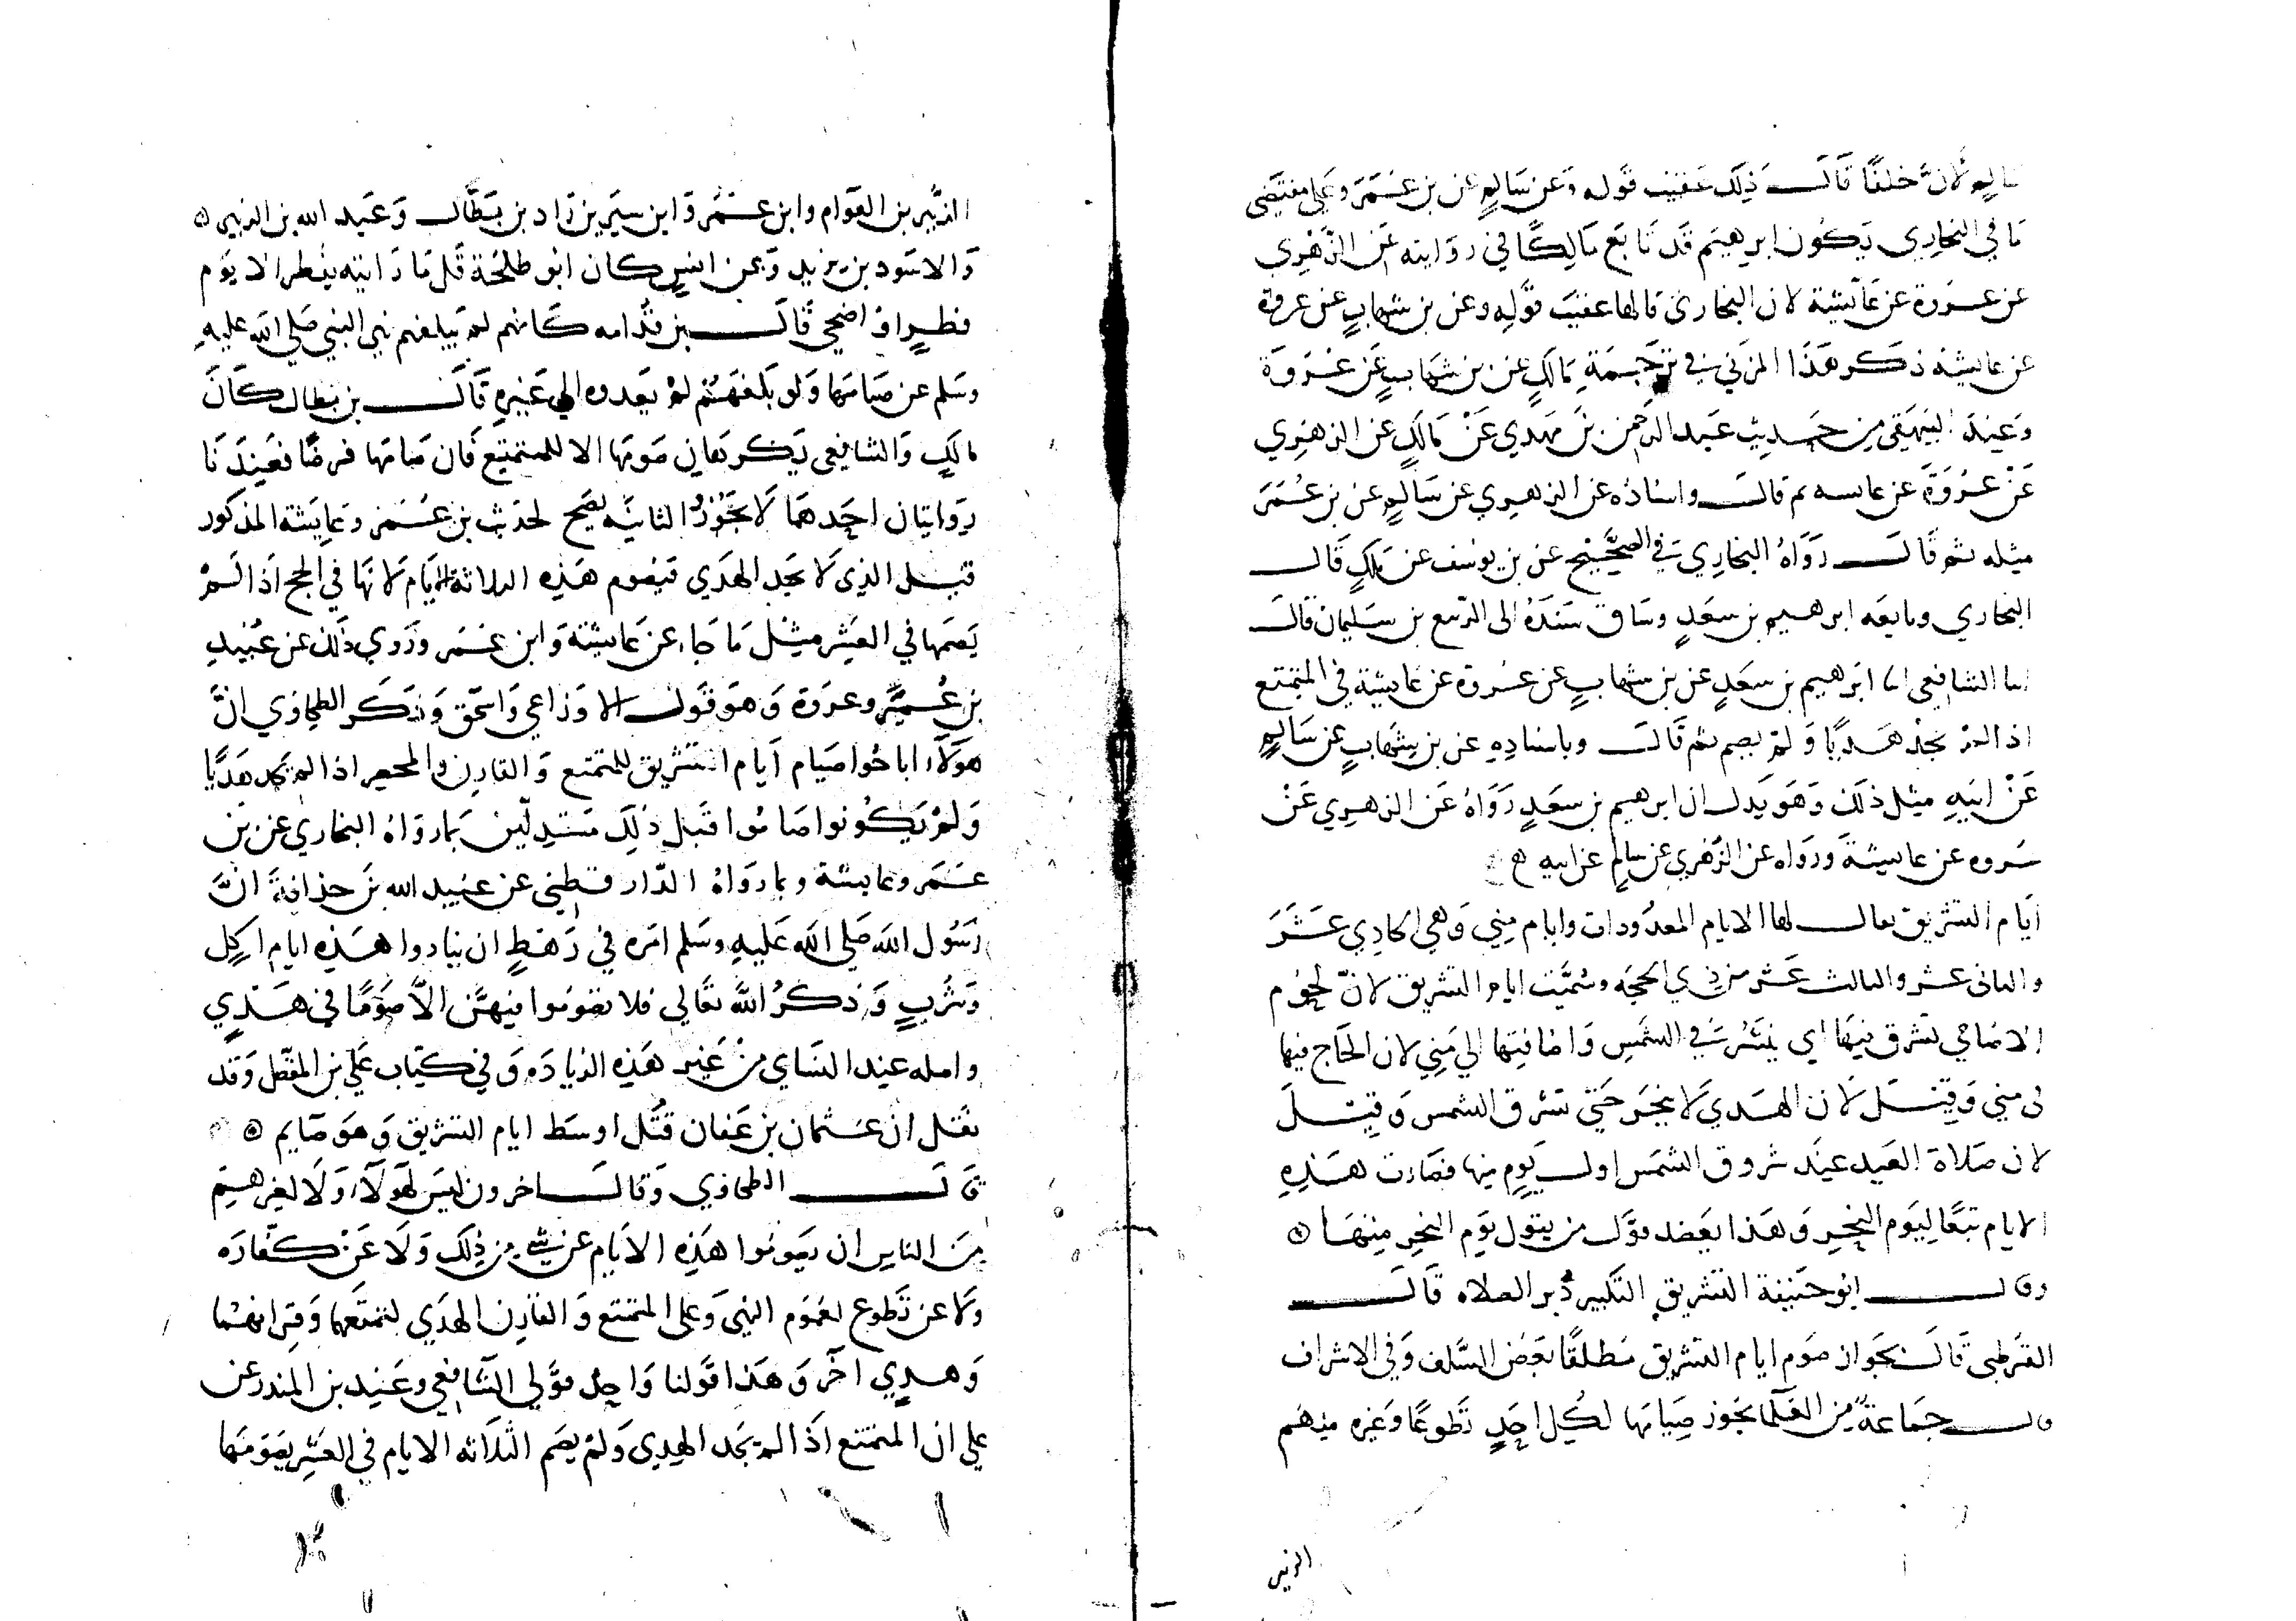 سالم لان خلفا قال ذلك عقيب قوله وعن سالم عن بن عمر وعلى مقتضى
ما في البخاري يكون ابرهيم قد تابع مالكا في روايته عن الزهري
عن عروة عن عائشة لان البخاري قالها عقيب قوله وعن بن شهاب عن عروة
عن عايشة ذكر هذا المزني في ترجمة مالك عن بن شهاب عن عروة
وعند البيهقي من حديث عبد الرحمن بن مهدي عن مالك عن الزهري
عن عروة عن عايسه ثم قال واسناده عن الزهري عن سالم عن بن عمر
مثله ثم قال رواه البخاري في الصحيح عن بن يوسف عن ملك قال
البخاري وتابعه ابرهيم بن سعد وساق سنده الى الربيع بن سليمان قال
انا الشافعي انا ابرهيم بن سعد عن بن شهاب عن عروة عن عايشة في المتمتع
اذا لم يجد هديا ولم يصم ثم قال وباسناده عن بن شهاب عن سالم
عن ابيه مثل ذلك وهو يدل ان ابرهيم بن سعد رواه عن الزهري عن
عروه عن عايشة ورواه عن الزهري عن سالم عن ابيه
ايام التشريق يقال لها الايام المعدودات وايام مني وهي الحادي عشر
والثاني عشر والثالث عشر من ذي الحجه وسميت ايام التشريق لان لحوم
الاضاحي تشرق فيها اي ينشر في الشمس واضافتها الي مني لان الحاج فيها
في مني وقيل لان الهدي لا ينحر حتي تشرق الشمس وقيل
لان صلاة العيد عند شروق الشمس اول يوم منها فصارت هذه
الايام تبعا ليوم النحر وهذا يعضد قول من يقول يوم النحر منها ه
وقال ابو حنيفة التشريق التكبير دبر الصلاه قال
القرطبي قال بجواز صوم ايام التشريق مطلقا بعض السلف وفي الاشراف
قال جماعة من العلما يجوز صيامها لكل احد تطوعا وغيره منهم
الزبير
الزبير بن العوام وابن عمر وابن سيرين زاد بن بطال وعبد الله بن الزبير ه
والاسود بن يزيد وعن انس كان ابو طلحة قل ما رايته يفطر الا يوم
فطر او اضحي قال بن قدامه كانهم لم يبلغهم نهي النبي صلي الله عليه
وسلم عن صيامها ولو بلغهم لم يعدوه الي غيره قال بن بطال كان
مالك والشافعي يكرهان صومها الا للمتمتع فان صامها فرضا فعندنا
روايتان احدهما لا يجوز الثانيه يصح لحديث بن عمر وعايشة المذكور
قبل الذي لا يجد الهدي فيصوم هذه الثلاثة الايام لانها في الحج اذا لم
يصمها في العشر مثل ما جاء عن عايشة وابن عمر وروي ذلك عن عبيد
بن عمير وعروة وهو قول الاوزاعي واسحق وذكر الطحاوي ان
هولاء اباحوا صيام ايام التشريق للمتمتع والقارن والمحصر اذا لم يجد هديا
ولم يكونوا صاموا قبل ذلك مستدلين بما رواه البخاري عن بن
عمر وعايشة وبما رواه الدارقطني عن عبيد الله بن حذافة ان
رسول الله صلي الله عليه وسلم امره في رهط ان ينادوا هذه ايام اكل
وشرب وذكر الله تعالي فلا تصوموا فيهن الا صوما في هدي
واصله عند النساي من غير هذه الزياده وفي كتاب علي بن المفضل وقد
نقل ان عثمان بن عفان قتل اوسط ايام التشريق وهو صايم ه
قال الطحاوي وقال اخرون ليس لهولاء ولا لغيرهم
من الناس ان يصوموا هذه الايام عن شي من ذلك ولا عن كفاره
ولا عن تطوع لعموم النهي وعلى المتمتع والقارن الهدي لتمتعهما وقرانهما
وهدي آخر وهذا قولنا واحد قولي الشافعي وعند بن المنذر عن
علي ان المتمتع اذا لم يجد الهدي ولم يصم الثلاثه الايام في العشر يصومها